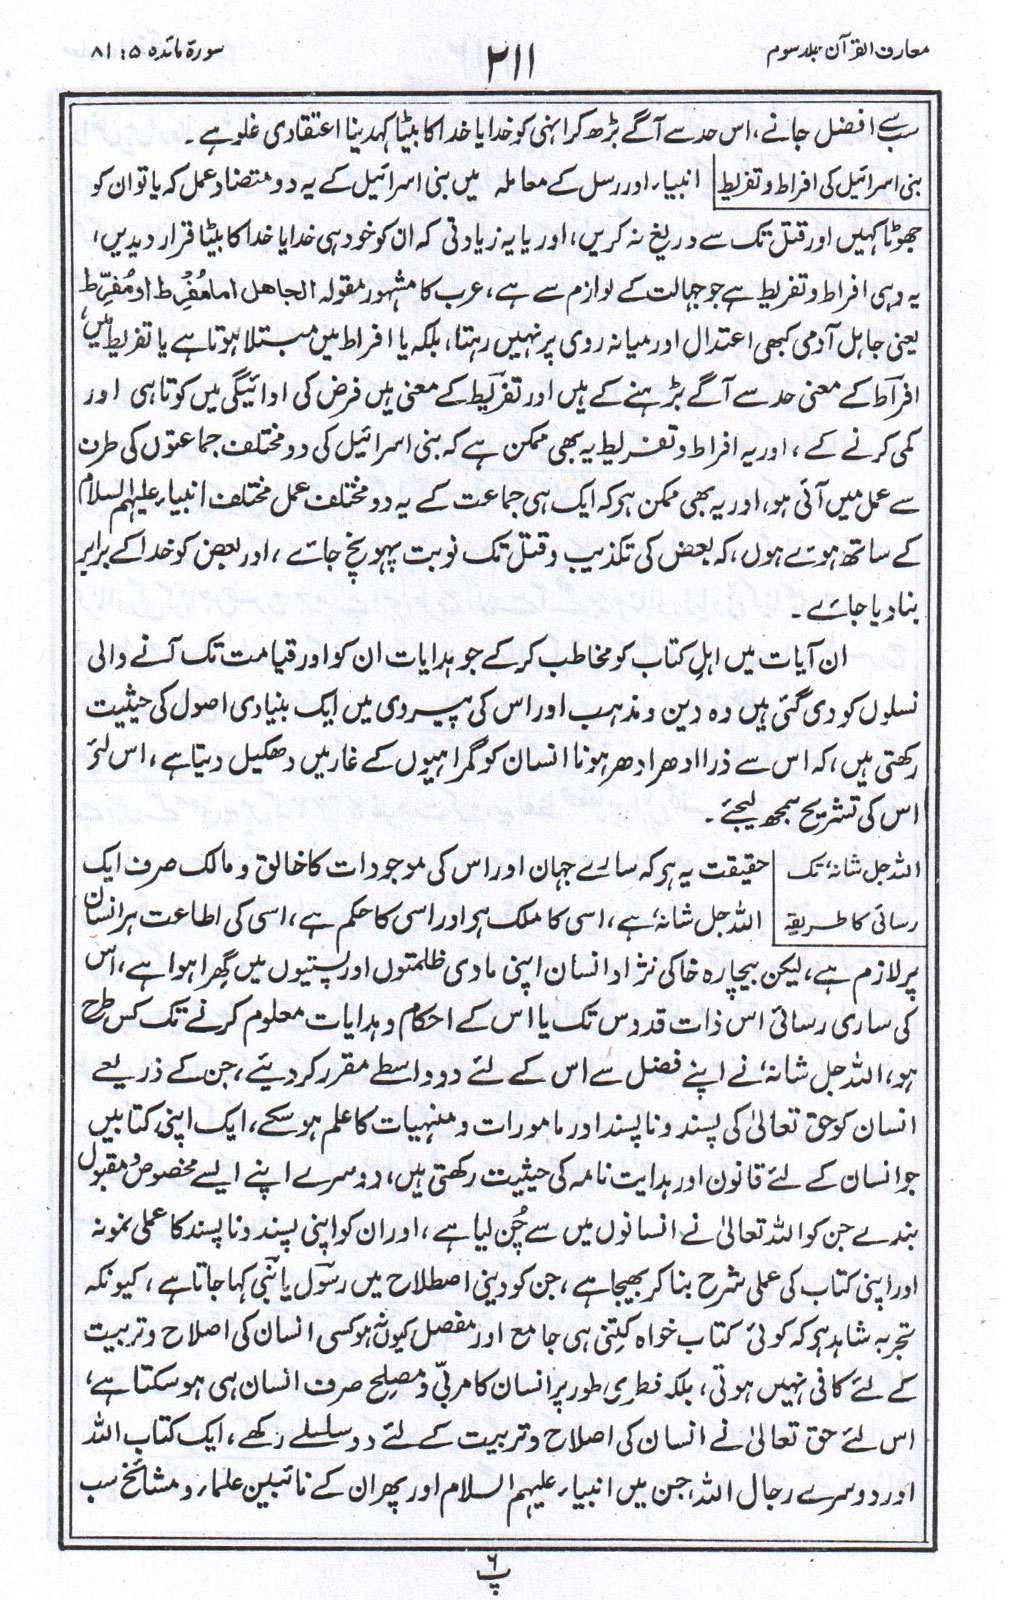 معارف القرآن جلد سوم
۲۱۱
سورۃ مائدہ ۵: ۸۱
سب سے افضل جانے، اس حد سے آگے بڑھ کر انہی کو خدا یا خدا کا بیٹا کہدینا اعتقادی غلو ہے۔
بنی اسرائیل کی افراط و تفریط انبیاء اور رسل کے معاملہ میں بنی اسرائیل کے یہ دو متضاد عمل کہ یا تو ان کو
جھوٹا کہیں اور قتل تک سے دریغ نہ کریں، اور یا یہ زیادتی کہ ان کو خود ہی خدا یا خدا کا بیٹا قرار دیدیں،
یہ وہی افراط و تفریط ہے جو جہالت کے لوازم سے ہے، عرب کا مشہور مقولہ الجاھل اما مُفْرِط او مُفَرِّط
یعنی جاہل آدمی کبھی اعتدال اور میانہ روی پر نہیں رہتا، بلکہ یا افراط میں مبتلا ہوتا ہے یا تفریط میں،
افراط کے معنی حد سے آگے بڑہنے کے ہیں اور تفریط کے معنی ہیں فرض کی ادائیگی میں کوتاہی اور
کمی کرنے کے، اور یہ افراط و تفریط یہ بھی ممکن ہے کہ بنی اسرائیل کی دو مختلف جماعتوں کی طرف
سے عمل میں آئی ہو، اور یہ بھی ممکن ہو کہ ایک ہی جماعت کے یہ دو مختلف عمل مختلف انبیاء علیہم السلام
کے ساتھ ہوے ہوں، کہ بعض کی تکذیب و قتل تک نوبت پہونچ جاۓ، اور بعض کو خدا کے برابر
بنا دیا جاۓ۔
ان آیات میں اہلِ کتاب کو مخاطب کر کے جو ہدایات ان کو اور قیامت تک آنے والی
نسلوں کو دی گئی ہیں وہ دین و مذہب اور اس کی پیروی میں ایک بنیادی اصول کی حیثیت
رکھتی ہیں، کہ اس سے ذرا ادھر ادھر ہونا انسان کو گمراہیوں کے غار میں دھکیل دیتا ہے، اس لئے
اس کی تشریح سمجھ لیجئے۔
اللہ جل شانہٗ تک حقیقت یہ ہو کہ سارے جہان اور اس کی موجودات کا خالق و مالک صرف ایک
رسائی کا طریقہ اللہ جل شانہٗ ہے، اسی کا ملک ہو اور اسی کا حکم ہے، اسی کی اطاعت ہر انسان
پر لازم ہے، لیکن بیچارہ خاکی نژاد انسان اپنی مادی ظلمتوں اور پستیوں میں گھِرا ہوا ہے، اس
کی ساری رسائی اس ذات قدوس تک یا اس کے احکام و ہدایات معلوم کرنے تک کس طرح
ہو، اللہ جل شانہٗ نے اپنے فضل سے اس کے لئے دو واسطے مقرر کر دیئے، جن کے ذریعے
انسان کو حق تعالیٰ کی پسند و ناپسند اور مامورات و منہیات کا علم ہو سکے، ایک اپنی کتابیں
جو انسان کے لئے قانون اور ہدایت نامہ کی حیثیت رکھتی ہیں، دوسرے اپنے ایسے مخصوص و مقبول
بندے جن کو اللہ تعالیٰ نے انسانوں میں سے چُن لیا ہے، اور ان کو اپنی پسند و ناپسند کا عملی نمونہ
اور اپنی کتاب کی عملی شرح بنا کر بھیجا ہے، جن کو دینی اصطلاح میں رسول یا نبی کہا جاتا ہے، کیونکہ
تجربہ شاہد ہو کہ کوئی کتاب خواہ کتنی ہی جامع اور مفصل کیوں نہ ہو کسی انسان کی اصلاح و تربیت
کے لئے کافی نہیں ہوتی، بلکہ فطری طور پر انسان کا مربّی و مصلح صرف انسان ہی ہو سکتا ہے،
اس لئے حق تعالیٰ نے انسان کی اصلاح و تربیت کے لئے دو سلسلے رکھے، ایک کتاب اللہ
اور دوسرے رجال اللہ، جن میں انبیاء علیہم السلام اور پھر ان کے نائبین علماء و مشائخ سب
پ ۶